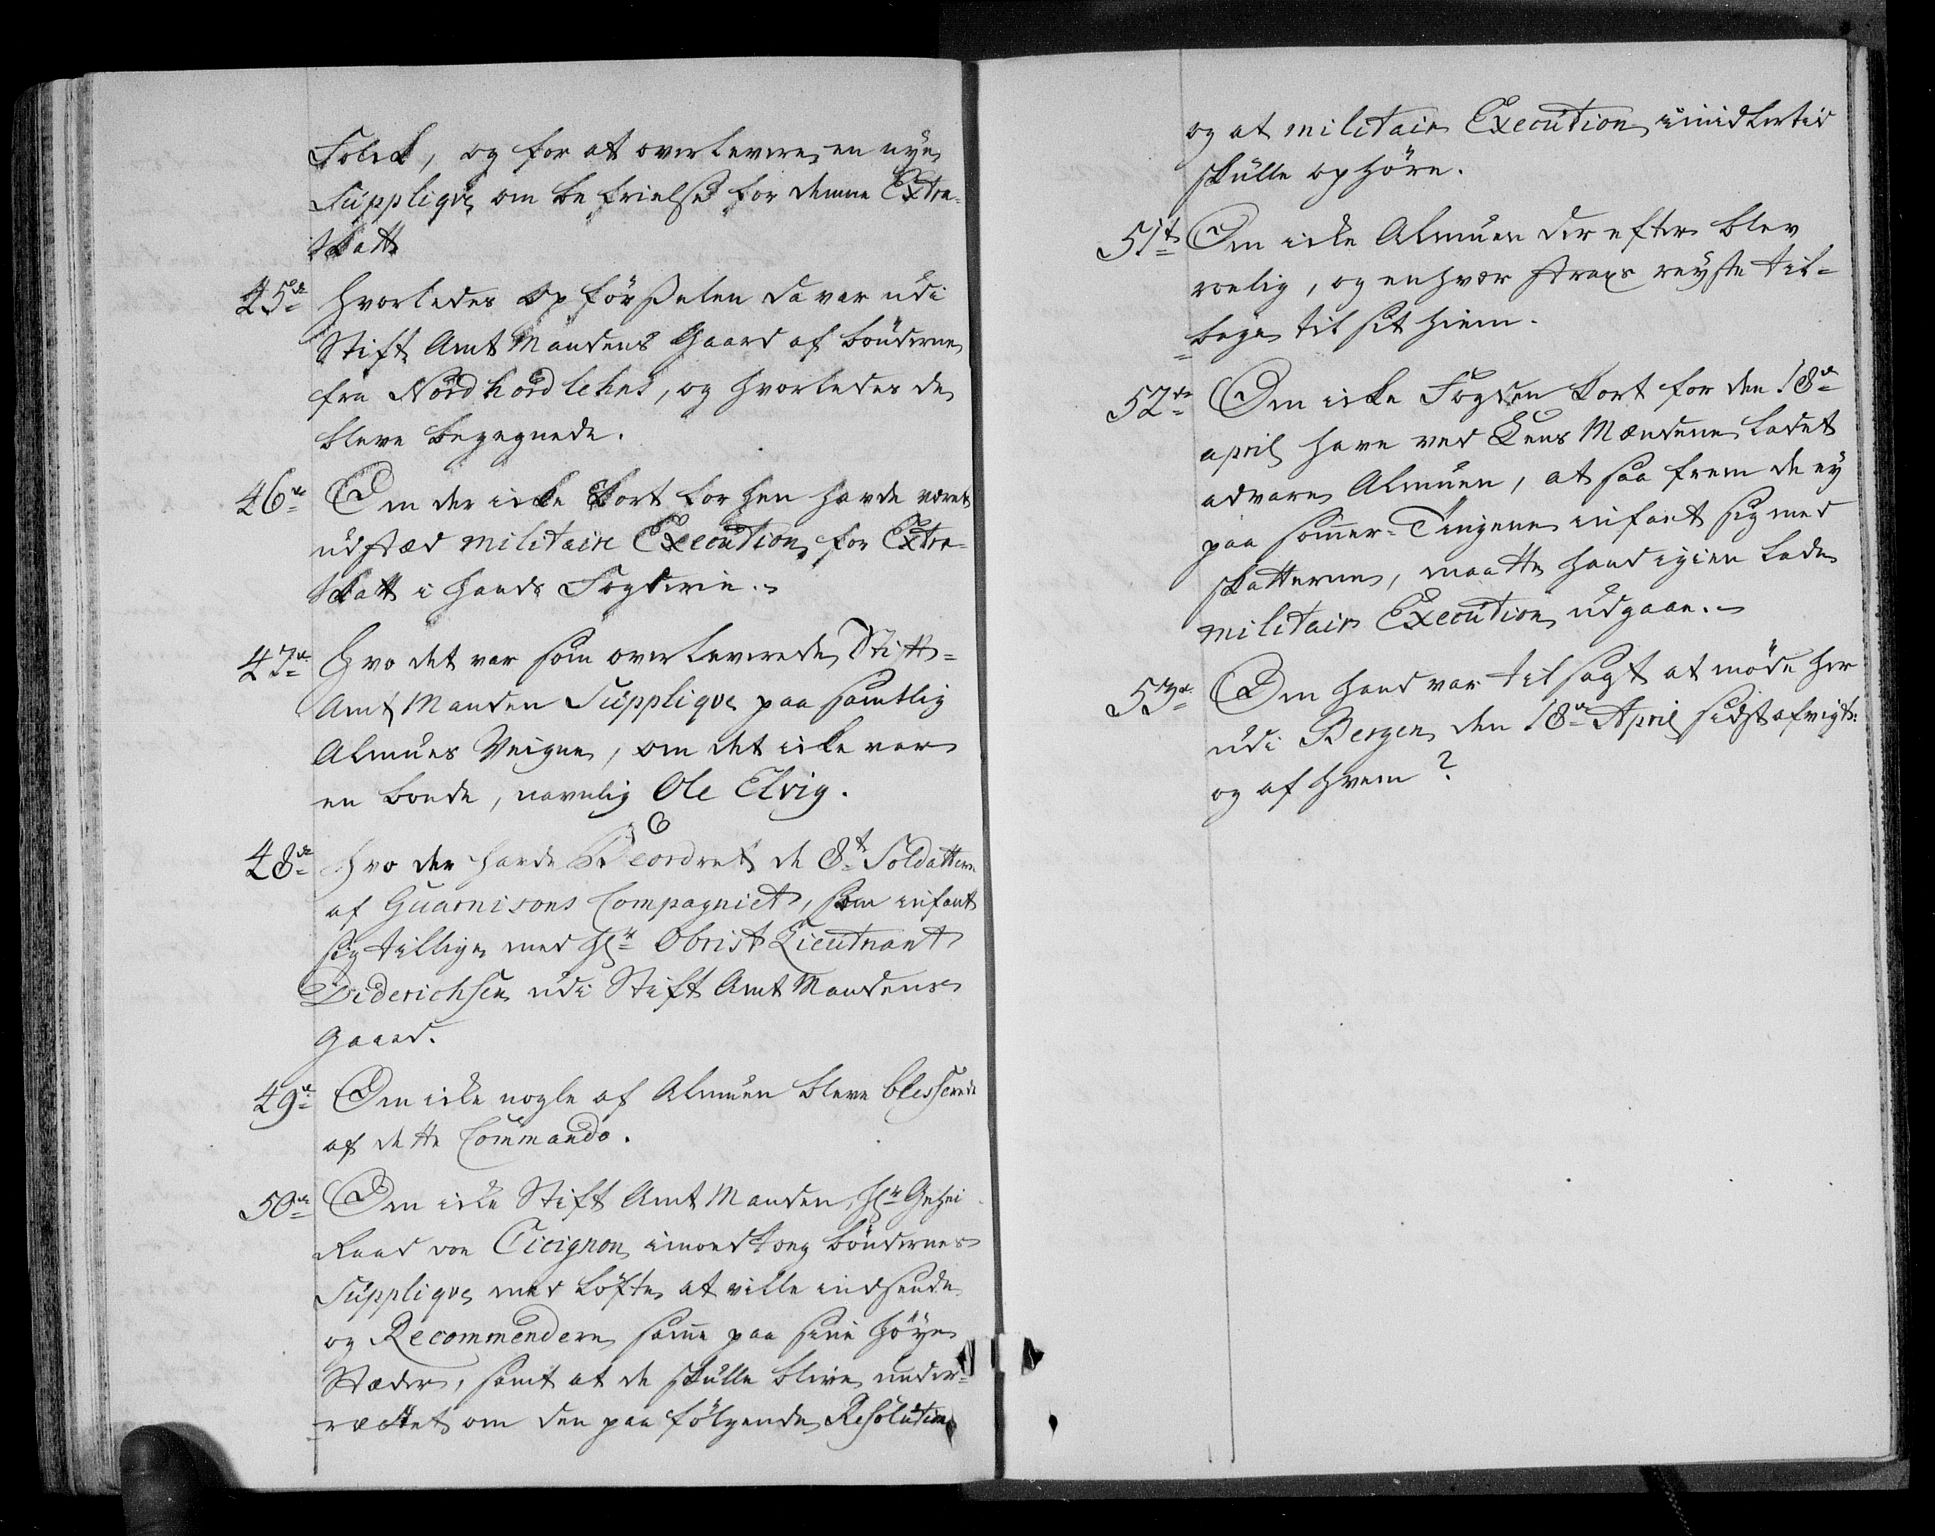 Folck, og for at overlevere en nye
Suppliqve om befrielse for denne Extra-
Skatt
45de Hvorledes Opförßelen da var udi
Stift Amt Mandens Gaard af bönderne
fra Nordhordlehns, og hvorledes de
bleve begegnede.
46de Om der icke kort forhen havde været
udstæd militaire Execution for Extra-
Skatt i hands Fogderie.
47de Hvo det var som overleverede Stift-
Amt Manden Suppliqve paa samtlig
Almues Veigne, om det icke var
en bonde, navnlig Ole Elvig.
48de Hvo der hafde Beordret de 8te Soldatter
af Guarnisons Compagniet, som infant
sig tillige med Hr. Obrist Lieutnant
Diderichsen udi Stift Amt Mandens
Gaard.
49de Om icke nogle af Almuen bleve blesserede
af dette Commando.
50de Om icke Stift Amt Manden, Hr. Gehei
Raad von Cicignon imodtog böndernes
Suppliqve med Löfte at ville indsende
og Recommendere samme paa sine höye
Stæder, samt at de skulle blive under-
rættet om den paa fölgende Resolution
og at militair Execution imidlertid
skulle ophöre.
51te Om icke Almuen der efter blev
roelig, og enhver strax reyste til-
bage til sit hiem.
52de Om icke Fogden kort for den 18de
april have ved Lens Mændene ladet
advare Almuen, at saa frem de ey
paa sommer-Tingene infant sig med
skatterne, maatte hand igien lade
militair Execution udgaae.
53de Om hand var tilsagt at möde her
udi Bergen den 18de April sidst afvigt:
og af hvem?